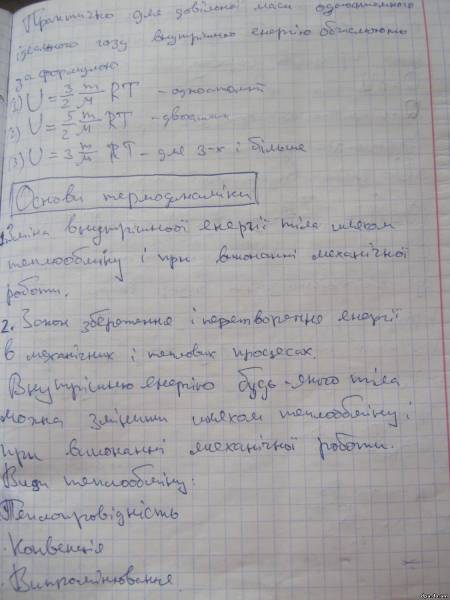 Практично для довільної маси одноатомного
ідеального газу внутрішню енергію обчислюють
за формулою
1) U = 3/2 m/M RT - одноатомні
2) U = 5/2 m/M RT - двоатомн
3) U = 3 m/M RT - для 3-х і більше
Основи термодинаміки
1. Зміна внутрішньої енергії тіла шляхом
теплообміну і при виконанні механічної
роботи.
2. Закон збереження і перетворення енергії
в механічних і теплових процесах.
Внутрішню енергію будь-якого тіла
можна змінити шляхом теплообміну і
при виконанні механічної роботи.
Види теплообміну:
Теплопровідність
· Конвекція
· Випромінювання